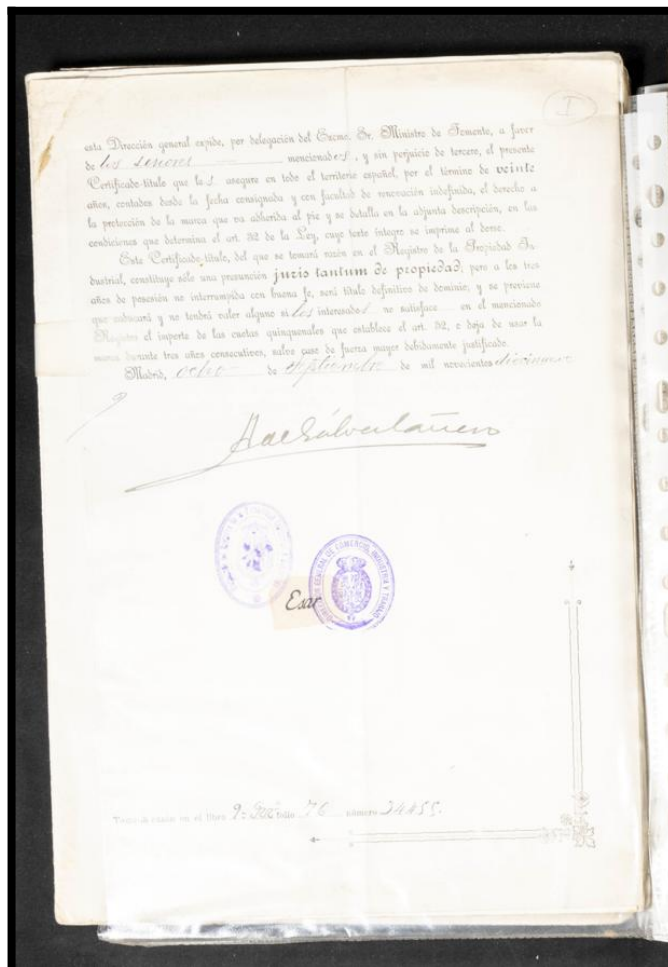 I
esta Dirección general expide, por delegación del Excmo. Sr. Ministro de Fomento, a favor
de los señores mencionados, y sin perjuicio de tercero, el presente
Certificado-título que les asegura en todo el territorio español, por el término de veinte
años, contados desde la fecha consignada y con facultad de renovación indefinida, el derecho a
la protección de la marca que va adherida al pie y se detalla en la adjunta descripción, en las
condiciones que determina el art. 32 de la Ley, cuyo texto íntegro se imprime al dorso.
Este Certificado-título, del que se tomará razón en el Registro de la Propiedad In-
dustrial, constituye sólo una presunción juris tantum de propiedad; pero a los tres
años de posesión no interrumpida con buena fe, será título definitivo de dominio; y se previene
que caducará y no tendrá valor alguno si los interesados no satisface en el mencionado
Registro el importe de las cuotas quinquenales que establece el art. 32, o deja de usar la
marca durante tres años consecutivos, salvo caso de fuerza mayor debidamente justificado.
Madrid, ocho de septiembre de mil novecientos
DIRECCIÓN GENERAL DE COMERCIO, INDUSTRIA Y TRABAJO
Esar
Tomada razón en el libro folio 76 número 34455.